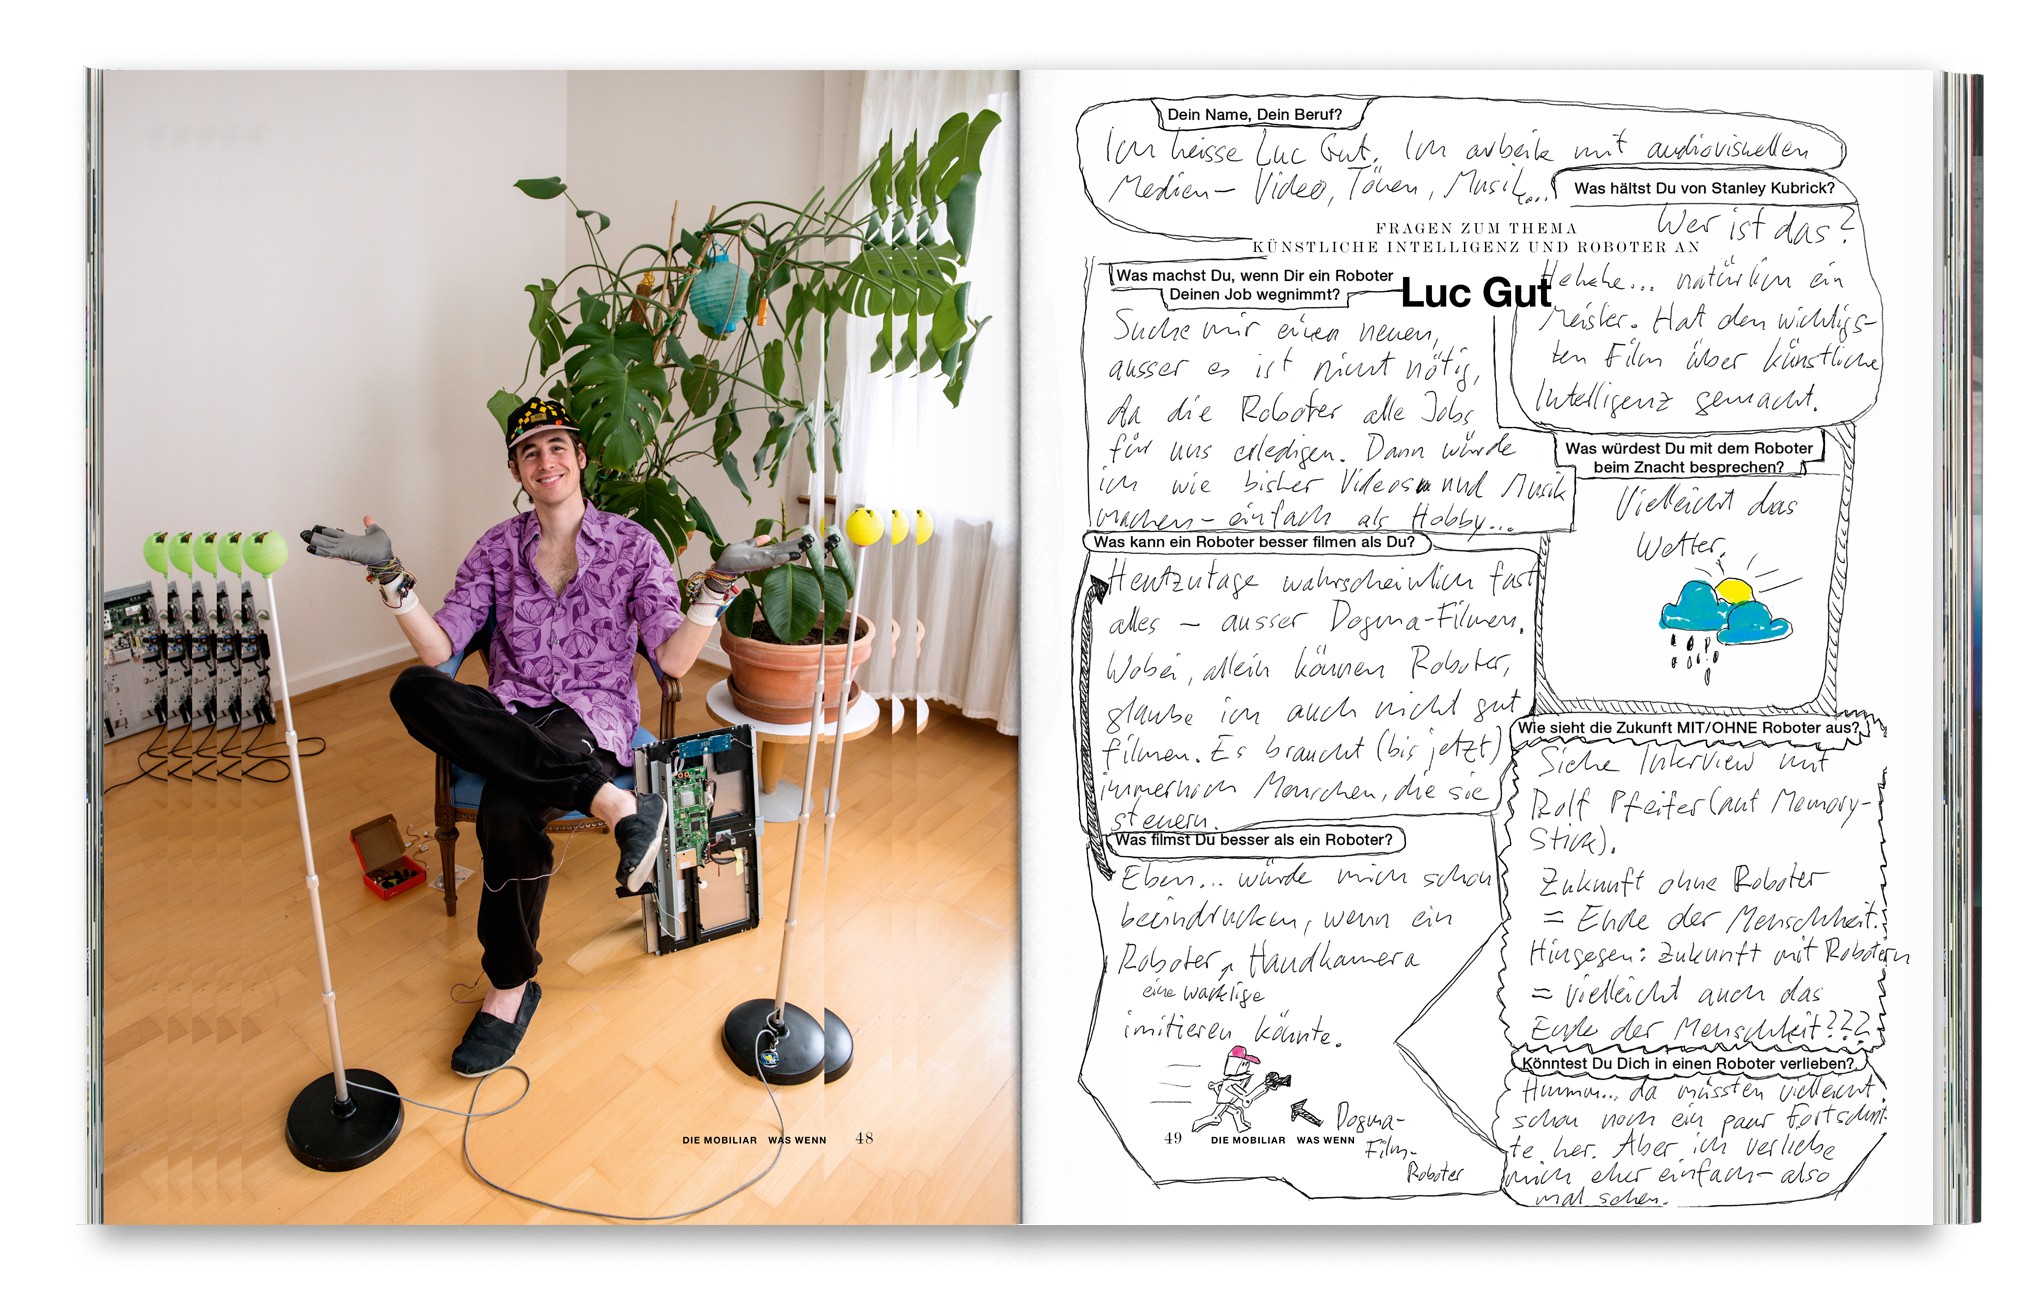 DIE MOBILIAR WAS WENN 48
Dein Name, Dein Beruf?
Ich heisse Luc Gut. Ich arbeite mit audiovisuellen
Medien – Video, Tönen, Musik...
Was hältst Du von Stanley Kubrick?
Wer ist das?
Hehehe... natürlich ein
Meister. Hat den wichtigs-
ten Film über künstliche
Intelligenz gemacht.
FRAGEN ZUM THEMA
KÜNSTLICHE INTELLIGENZ UND ROBOTER AN
Luc Gut
Was machst Du, wenn Dir ein Roboter
Deinen Job wegnimmt?
Suche mir einen neuen,
ausser es ist nicht nötig,
da die Roboter alle Jobs
für uns erledigen. Dann würde
ich wie bisher Videos und Musik
machen – einfach als Hobby...
Was würdest Du mit dem Roboter
beim Znacht besprechen?
Vielleicht das
Wetter.
Was kann ein Roboter besser filmen als Du?
Heutzutage wahrscheinlich fast
alles – ausser Dogma-Filmen.
Wobei, allein können Roboter,
glaube ich auch nicht gut
filmen. Es braucht (bis jetzt)
immernoch Menschen, die sie
steuern.
Wie sieht die Zukunft MIT/OHNE Roboter aus?
Siehe Interview mit
Rolf Pfeifer (auf Memory-
Stick).
Zukunft ohne Roboter
= Ende der Menschheit.
Hingegen: Zukunft mit Robotern
= vielleicht auch das
Ende der Menschheit???
Was filmst Du besser als ein Roboter?
Eben... würde mich schon
beeindrucken, wenn ein
Roboter Handkamera
eine wacklige
imitieren könnte.
Dogma-
Film-
Roboter
Könntest Du Dich in einen Roboter verlieben?
Hmmm... da müssten vielleicht
schon noch ein paar Fortschrit-
te her. Aber ich verliebe
mich eher einfach – also
mal sehen.
49 DIE MOBILIAR WAS WENN